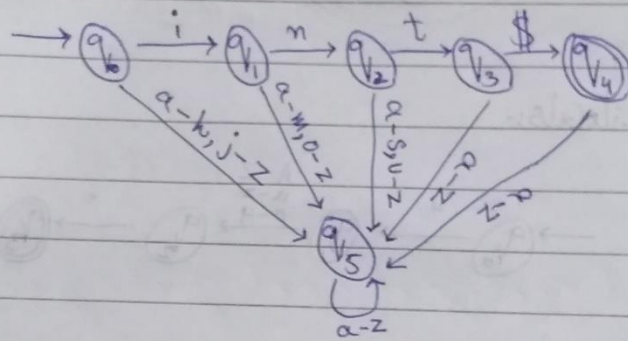 i n t $
q0 q1 q2 q3 q4
a-h, j-z a-m, o-z a-s, u-z a-z a-z
q5
a-z